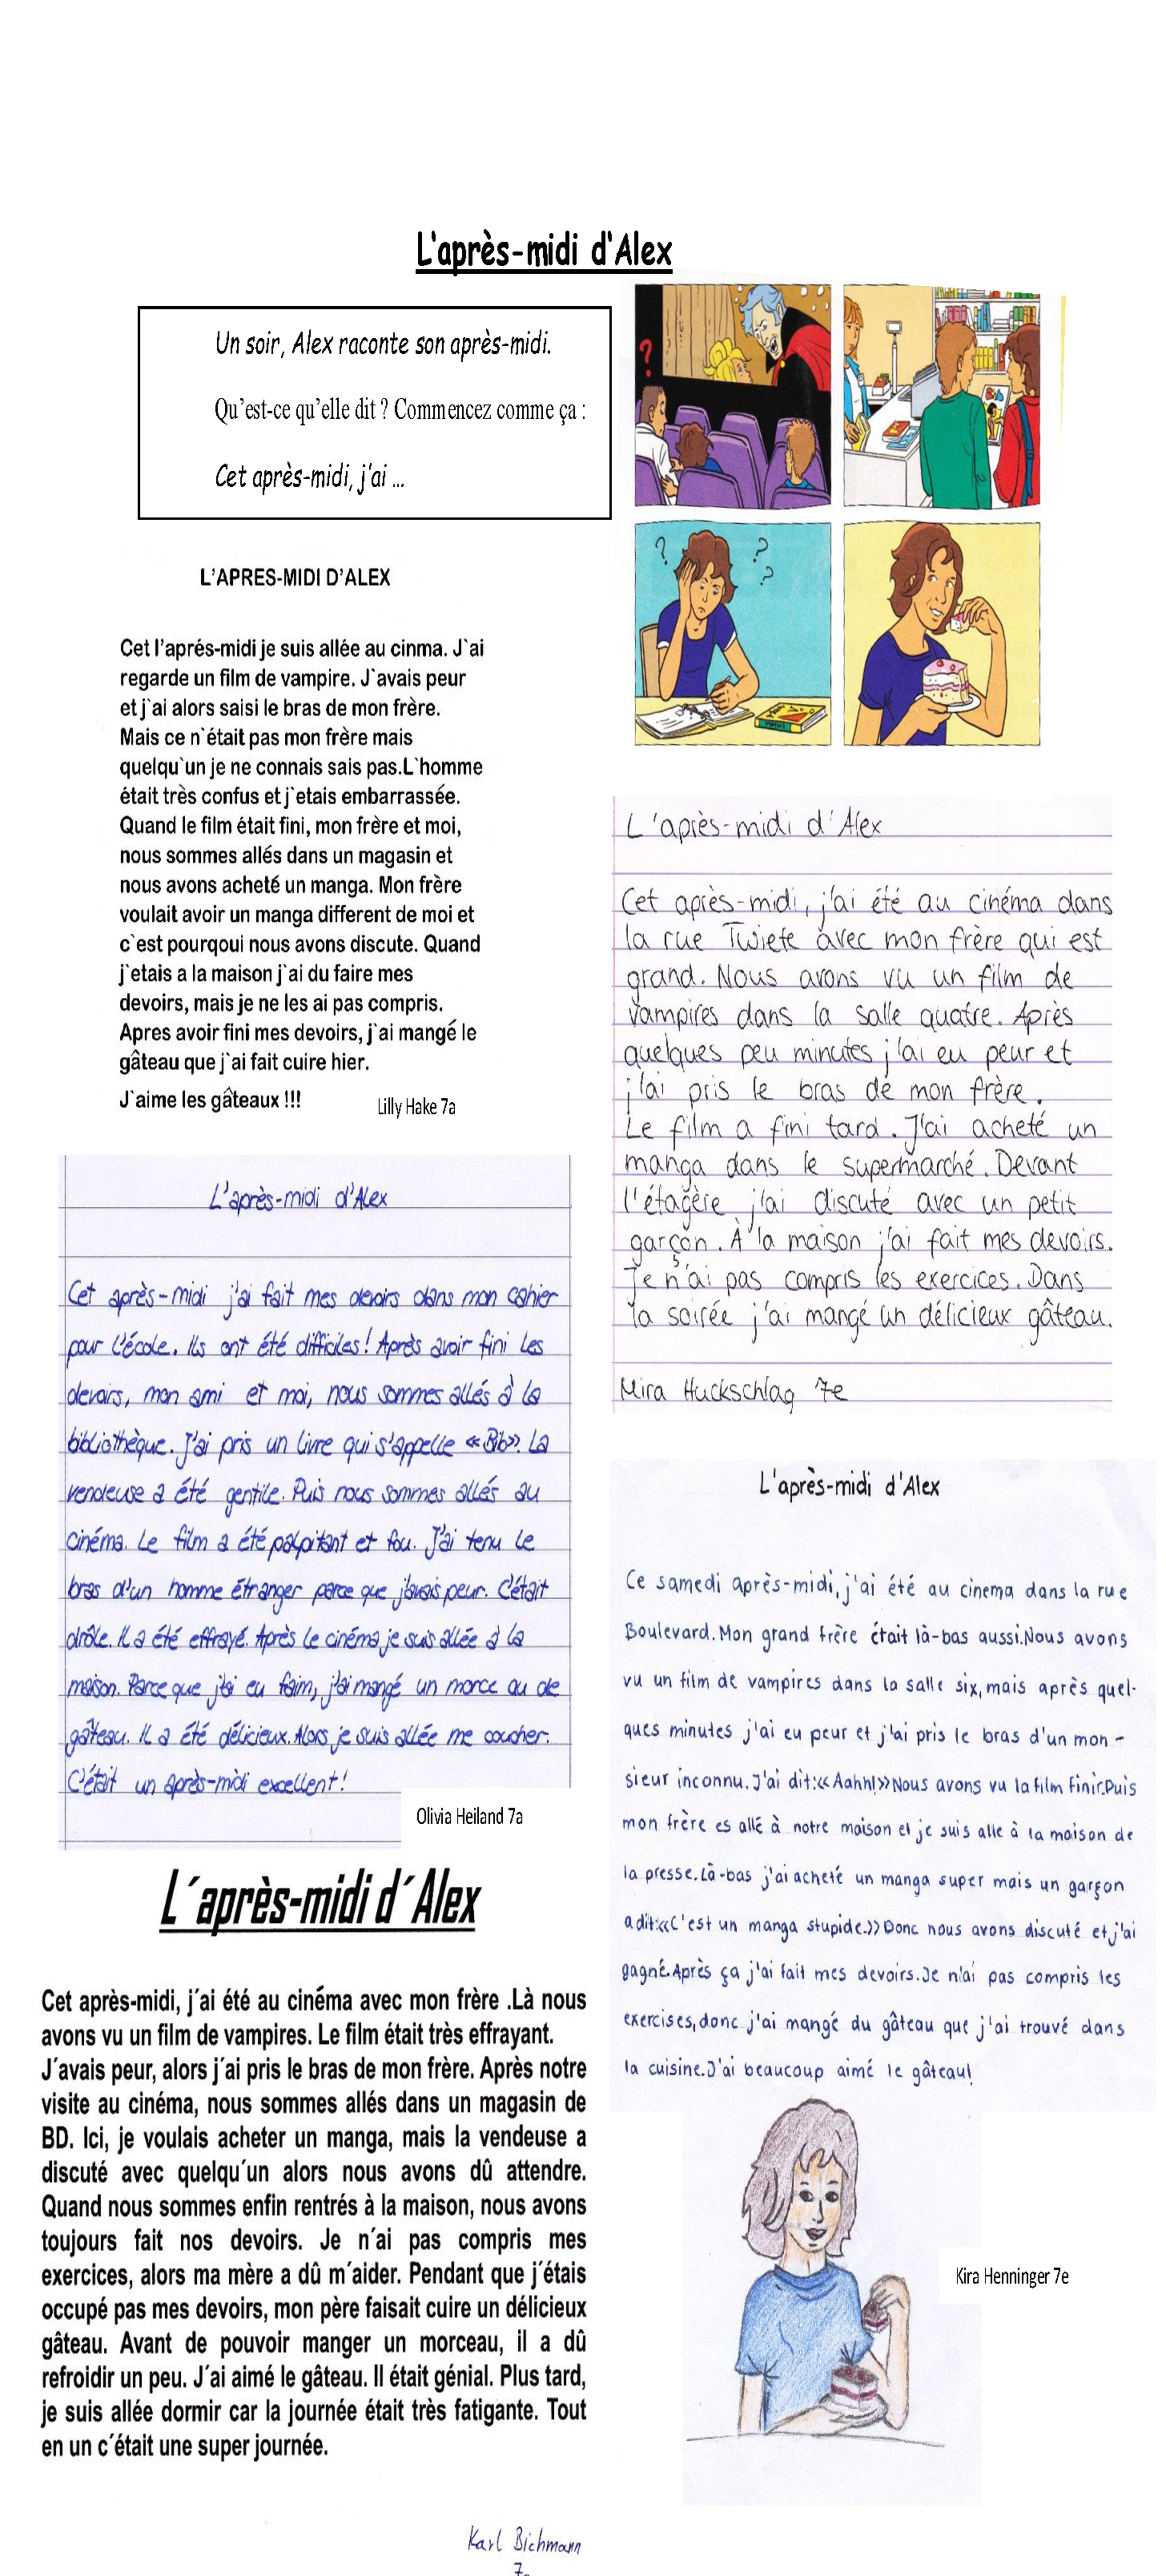 L'après-midi d'Alex
Un soir, Alex raconte son après-midi.
Qu'est-ce qu'elle dit ? Commencez comme ça :
Cet après-midi, j'ai ...
?
? ? ?
L'APRES-MIDI D'ALEX
Cet l'aprés-midi je suis allée au cinma. J`ai
regarde un film de vampire. J`avais peur
et j`ai alors saisi le bras de mon frère.
Mais ce n`était pas mon frère mais
quelqu`un je ne connais sais pas.L`homme
était très confus et j`etais embarrassée.
Quand le film était fini, mon frère et moi,
nous sommes allés dans un magasin et
nous avons acheté un manga. Mon frère
voulait avoir un manga different de moi et
c`est pourqoui nous avons discute. Quand
j`etais a la maison j`ai du faire mes
devoirs, mais je ne les ai pas compris.
Apres avoir fini mes devoirs, j`ai mangé le
gâteau que j`ai fait cuire hier.
J`aime les gâteaux !!!
Lilly Hake 7a
L'après-midi d'Alex
Cet après-midi, j'ai été au cinéma dans
la rue Twiete avec mon frère qui est
grand. Nous avons vu un film de
vampires dans la salle quatre. Après
quelques peu minutes j'ai eu peur et
j'ai pris le bras de mon frère.
Le film a fini tard. J'ai acheté un
manga dans le supermarché. Devant
l'étagère j'ai discuté avec un petit
garçon. À la maison j'ai fait mes devoirs.
Je n'ai pas compris les exercices. Dans
la soirée j'ai mangé un délicieux gâteau.
Mira Huckschlag 7e
L'après-midi d'Alex
Cet après-midi j'ai fait mes devoirs dans mon cahier
pour l'école. Ils ont été difficiles! Après avoir fini les
devoirs, mon ami et moi, nous sommes allés à la
bibliothèque. J'ai pris un livre qui s'appelle «Bib». La
vendeuse a été gentile. Puis nous sommes allés au
cinéma. Le film a été palpitant et fou. J'ai tenu le
bras d'un homme étranger parce que j'avais peur. C'était
drôle. Il a été effrayé. Après le cinéma je suis allée à la
maison. Parce que j'ai eu faim, j'ai mangé un morce au de
gâteau. Il a été délicieux. Alors je suis allée me coucher.
C'était un après-midi excellent!
Olivia Heiland 7a
L'après-midi d'Alex
Ce samedi après-midi, j'ai été au cinema dans la rue
Boulevard. Mon grand frère était là-bas aussi. Nous avons
vu un film de vampires dans la salle six, mais après quel-
ques minutes j'ai eu peur et j'ai pris le bras d'un mon-
sieur inconnu. J'ai dit:<<Aahh!>>Nous avons vu la film finir. Puis
mon frère es allé à notre maison et je suis alle à la maison de
la presse. Là-bas j'ai acheté un manga super mais un garçon
a dit:<<C'est un manga stupide.>> Donc nous avons discuté et j'ai
gagné. Après ça j'ai fait mes devoirs. Je n'ai pas compris les
exercises, donc j'ai mangé du gâteau que j'ai trouvé dans
la cuisine. J'ai beaucoup aimé le gâteau!
Kira Henninger 7e
L´après-midi d´Alex
Cet après-midi, j´ai été au cinéma avec mon frère .Là nous
avons vu un film de vampires. Le film était très effrayant.
J´avais peur, alors j´ai pris le bras de mon frère. Après notre
visite au cinéma, nous sommes allés dans un magasin de
BD. Ici, je voulais acheter un manga, mais la vendeuse a
discuté avec quelqu´un alors nous avons dû attendre.
Quand nous sommes enfin rentrés à la maison, nous avons
toujours fait nos devoirs. Je n´ai pas compris mes
exercices, alors ma mère a dû m´aider. Pendant que j´étais
occupé pas mes devoirs, mon père faisait cuire un délicieux
gâteau. Avant de pouvoir manger un morceau, il a dû
refroidir un peu. J´ai aimé le gâteau. Il était génial. Plus tard,
je suis allée dormir car la journée était très fatigante. Tout
en un c´était une super journée.
Karl Bichmann